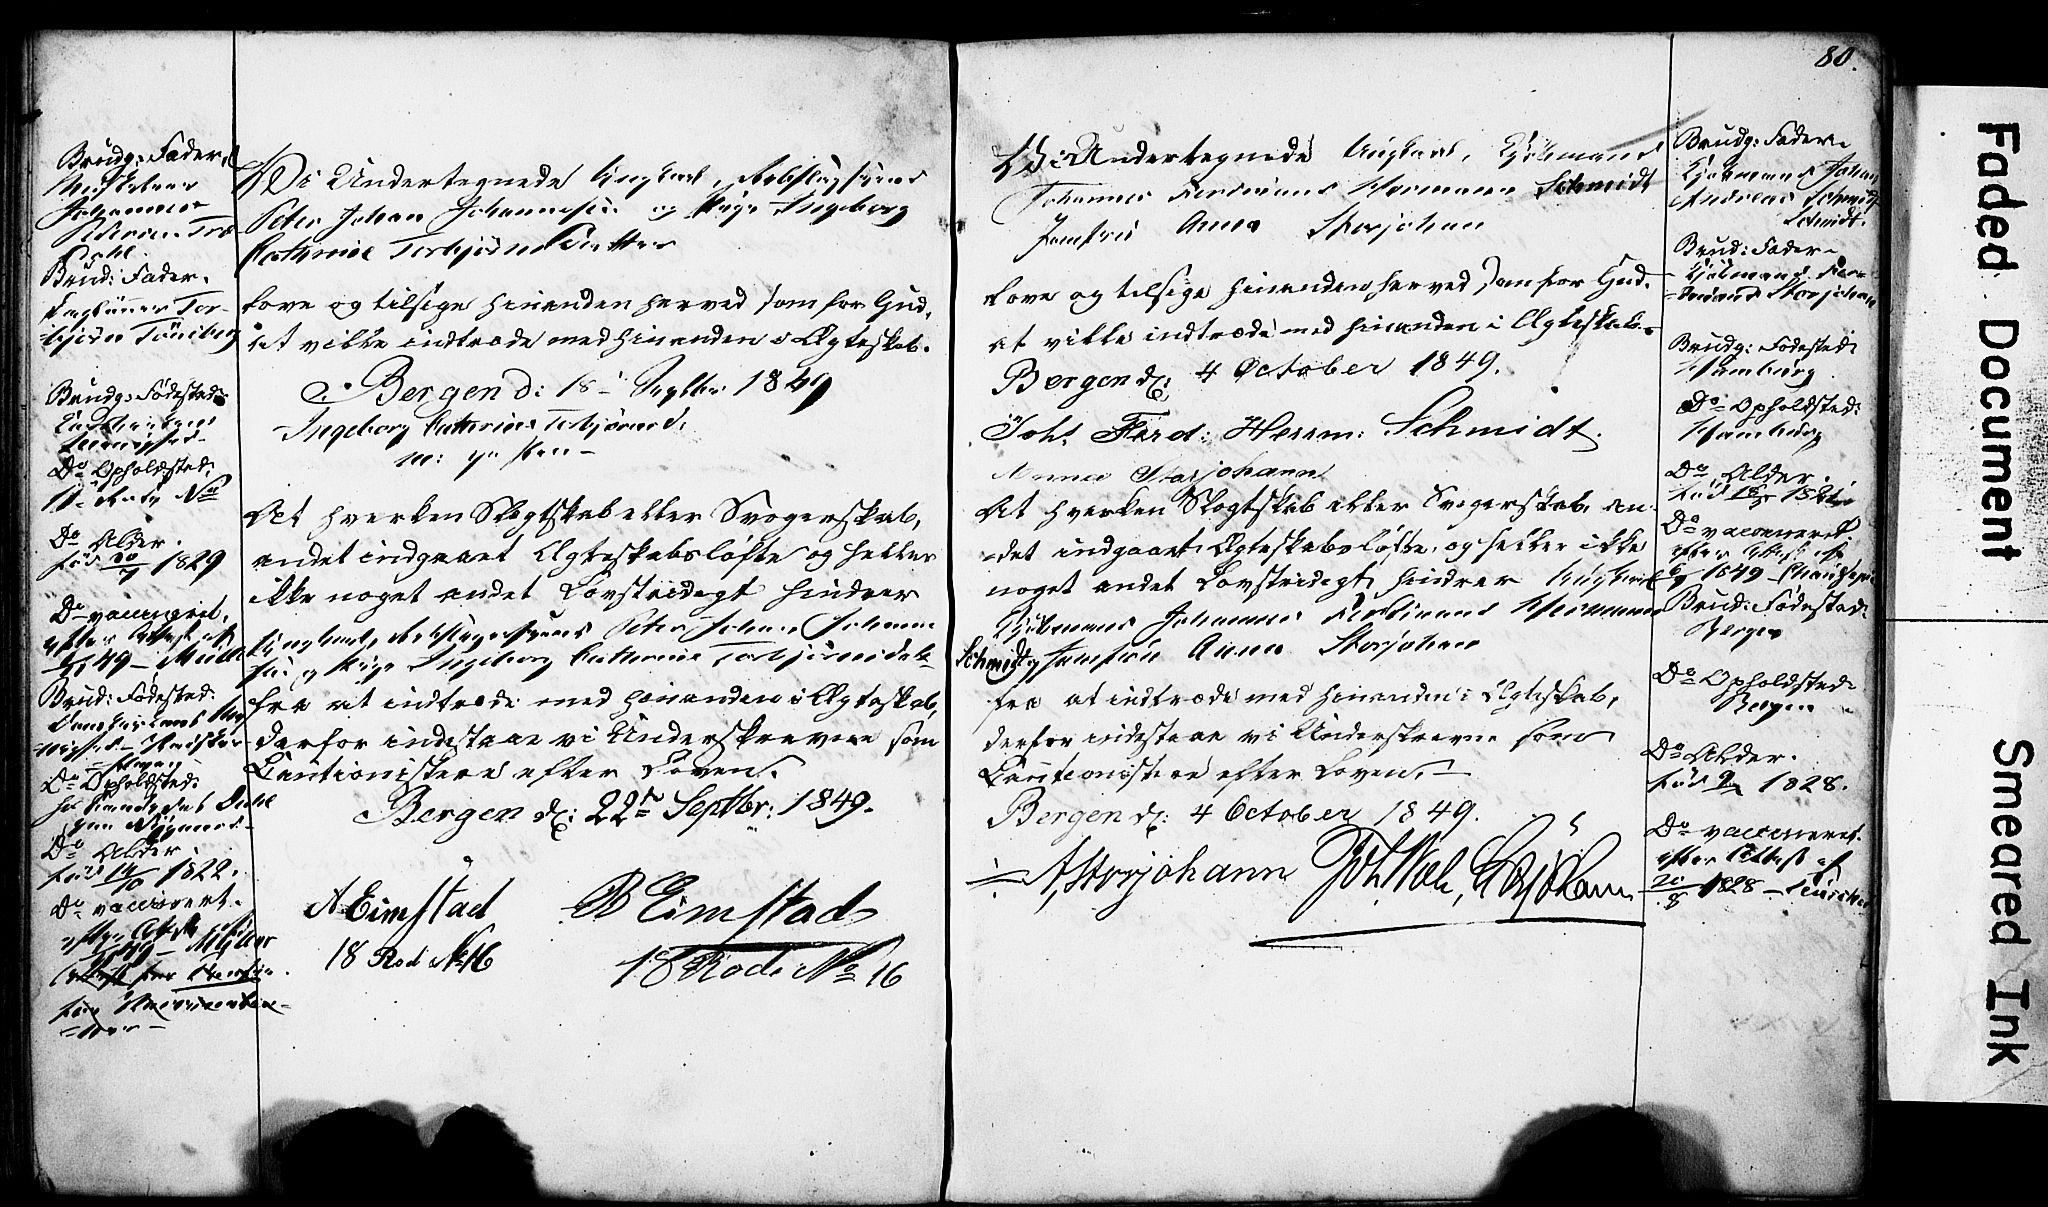 Brudg: Fader.
Johannes
Brud: Fader.
Brudg: Fødested:
Do Opholdsted:
No
Do Alder.
født 20/7 1829
Do vaccineret.
efter Attest af
49 –
Brud: Fødested:
Do Opholdsted:
Do Alder
født 14/10 1822.
Do vaccineret.
efter Attest
Vi Undertegnede Ungkarl,
Peter Johan Johannesen og Pige Ingeborg
Cathrine Torbjørnsdatter
love og tilsige hinanden herved som for Gud,
at ville indtræde med hinanden i Ægteskab.
Bergen d: 18 Septbr: 1849
Ingeborg Cathrine Torbjørnsd:
m: p: Pen –
At hverken Slægtskab eller Svogerskab,
andet indgaaet Ægteskabsløfte og heller
ikke noget andet Lovstridigt hindrer
Ungkarl, Peter Johan Johanne-
sen og Pige Ingeborg Cathrine Torbjørnsdatter
fra at indtræde med hinanden i Ægteskab,
derfor indestaae vi Underskrevne som
Cautionister efter Loven.
Bergen d: 22de Septbr: 1849.
A Eimstad B Eimstad
18 Rod No 16 18 Rode No 16
80.
Vi Undertegnede Ungkarl, Kjøbmand
Johannes Ferdinand Hermann Schmidt
Jomfru Anna Storjohan
love og tilsige hinanden herved som for Gud,
at ville indtræde med hinanden i Ægteskab.
Bergen d: 4 October 1849.
Joh. Ferd: Herrm: Schmidt.
Anna Storjohann
At hverken Slægtskab eller Svogerskab, an-
det indgaaet Ægteskabsløfte, og heller ikke
noget andet Lovstridigt hindrer Ungkarl
Kjøbmand Johannes Ferdinand Hermann
Schmidt og Jomfru Anna Storjohan
fra at indtræde med hinanden i Ægteskab,
derfor indestaae vi Underskrevne som
Cautionister efter Loven. –
Bergen d: 4 October 1849.
A Storjohann
Brudg: Fader.
Kjøbmand Johan
Andreas Schmidt
Schmidt.
Brud: Fader.
Kjøbmand Fer-
dinand Storjohan
Brudg: Fødested:
Hamburg
Do Opholdsted:
Hamburg
Do Alder.
født
Do vaccineret
efter Attest af
1849 –
Brud: Fødested:
Bergen
Do Opholdsted:
Bergen
Do Alder.
født 1828.
Do vaccineret.
efter Attest af
20/8 1828 –
Faded Document
Smeared Ink